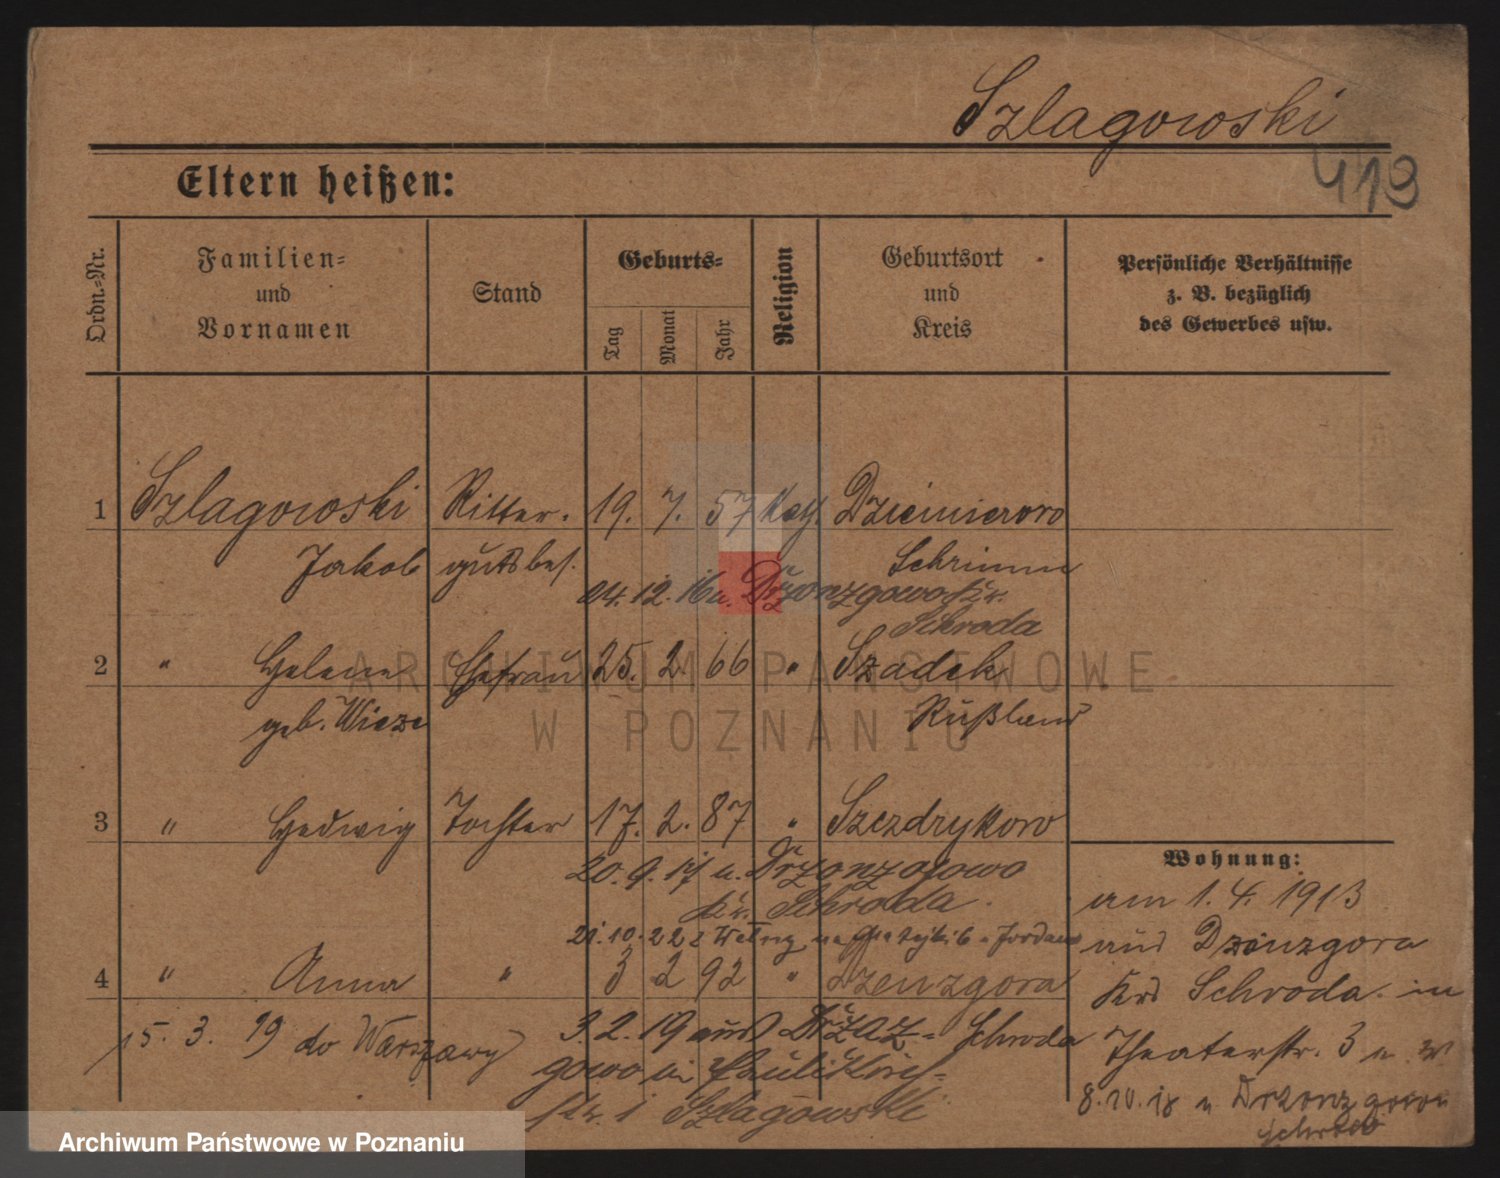 Szlagowski
413
Eltern heißen:
Ordn.-Nr.
Familien-
und
Vornamen
Stand
Geburts-
Tag
Monat
Jahr
Religion
Geburtsort
und
Kreis
Persönliche Verhältnisse
z. B. bezüglich
des Gewerbes usw.
1 Szlagowski Ritter- 19. 7. 57 Kath. Dzcimierowo
Jakob gutsbes. Schrimm
04. 12. 16 n. Držonzgowo Kr.
Schroda
2 " Helene Ehefrau 25. 2. 66 " Szadek
geb. Wieze Rußland
3 " Hedwig Tochter 17. 2. 87 " Szczdrykowo
20. 9. 17 n. Držonzgowo
Kr. Schroda.
21. 10. 22 z
4 " Anna " 3 2 92 " Dzenzgora
15. 3. 19 do Warszawy
3. 2. 19 aus Držaz- Schroda
gowo in Paulikirch-
str. 1 Szlagowski
Wohnung:
am 1. 4. 1913
aus Dzenzgora
Krs Schroda in
Theaterstr. 3
8. 10. 18 n Drzonzgowo
Schroda
ARCHIWUM PAŃSTWOWE
W POZNANIU
Archiwum Państwowe w Poznaniu